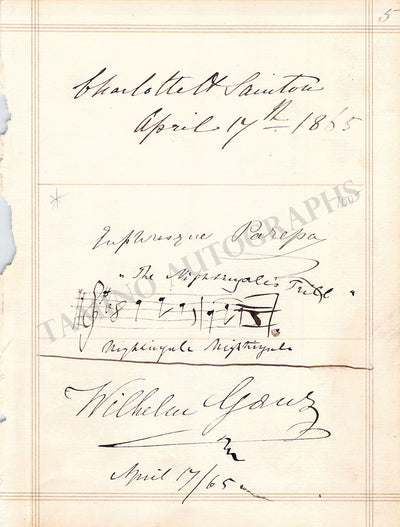 5
Charlotte H Sainton
April 17th 1865
Euphrosyne Parepa
"The Nightingale's Trill"
Nightingale Nightingale
Wilhelm Ganz
April 17/65
TAMINO AUTOGRAPHS